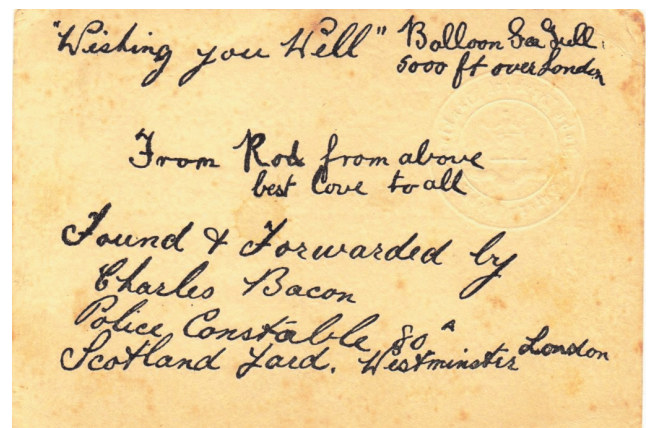 "Wishing you Well" Balloon Sea Gull.
5000 ft over London
From Rod from above
best Love to all
Found & Forwarded by
Charles Bacon
Police Constable 80 A
Scotland Yard. Westminster London